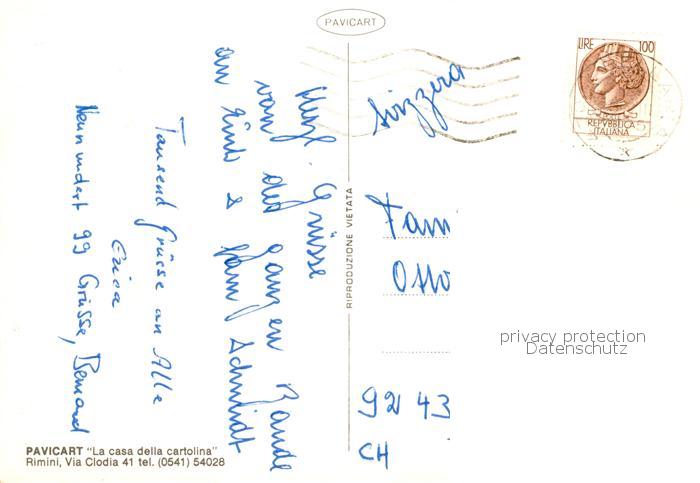 PAVICART
LIRE 100
REPVBBLICA
ITALIANA
Svizzera
Fam
Otto
92 43
CH
RIPRODUZIONE VIETATA
privacy protection
Datenschutz
Herzl. Grüsse
von der ganzen Bande
an Euch & Fam Schmidt
Tausend Grüsse an Alle
Erica
Neunundert 99 Grüsse, Bernard
PAVICART "La casa della cartolina"
Rimini, Via Clodia 41 tel. (0541) 54028